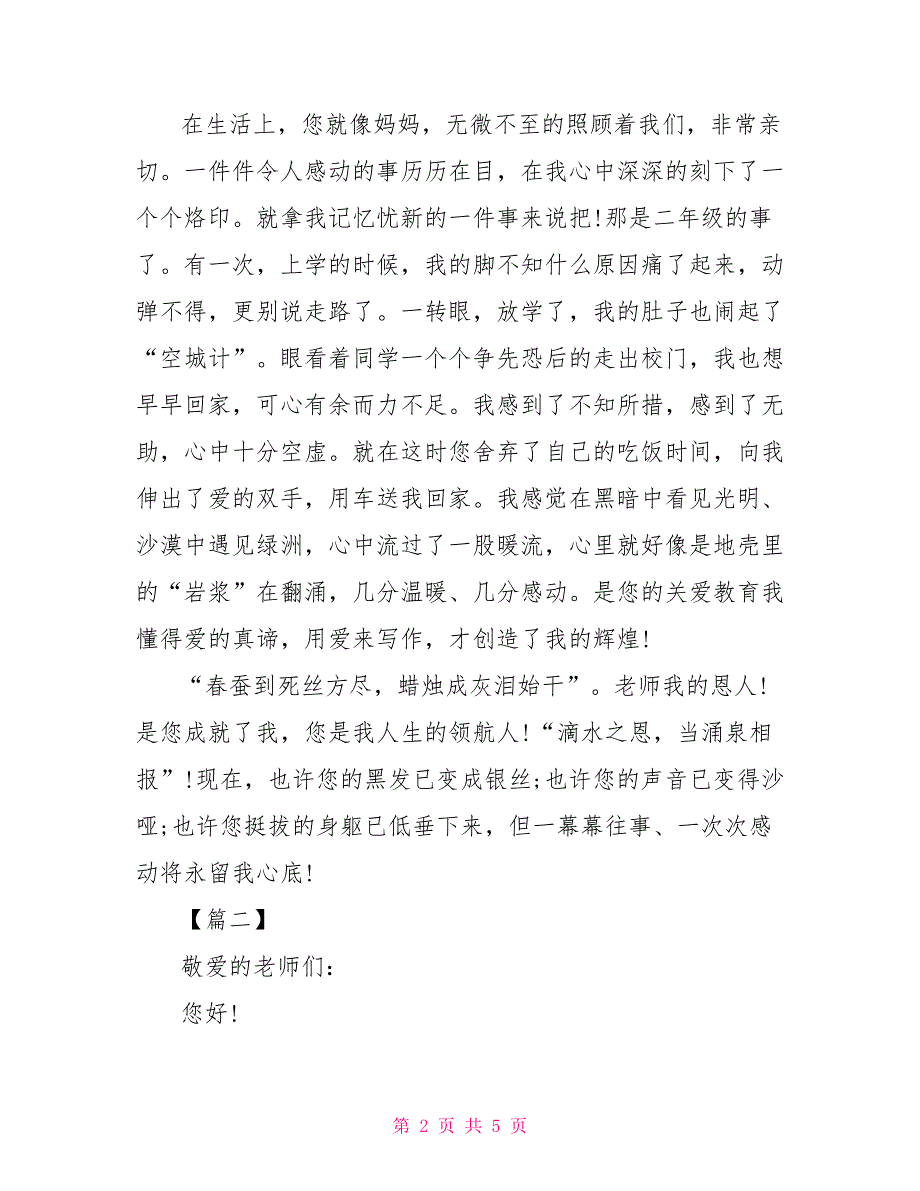 在生活上，您就像妈妈，无微不至的照顾着我们，非常亲
切。一件件令人感动的事历历在目，在我心中深深的刻下了一
个个烙印。就拿我记忆忧新的一件事来说把!那是二年级的事
了。有一次，上学的时候，我的脚不知什么原因痛了起来，动
弹不得，更别说走路了。一转眼，放学了，我的肚子也闹起了
“空城计”。眼看着同学一个个争先恐后的走出校门，我也想
早早回家，可心有余而力不足。我感到了不知所措，感到了无
助，心中十分空虚。就在这时您舍弃了自己的吃饭时间，向我
伸出了爱的双手，用车送我回家。我感觉在黑暗中看见光明、
沙漠中遇见绿洲，心中流过了一股暖流，心里就好像是地壳里
的“岩浆”在翻涌，几分温暖、几分感动。是您的关爱教育我
懂得爱的真谛，用爱来写作，才创造了我的辉煌!
“春蚕到死丝方尽，蜡烛成灰泪始干”。老师我的恩人!
是您成就了我，您是我人生的领航人!“滴水之恩，当涌泉相
报”!现在，也许您的黑发已变成银丝;也许您的声音已变得沙
哑;也许您挺拔的身躯已低垂下来，但一幕幕往事、一次次感
动将永留我心底!
【篇二】
敬爱的老师们:
您好!
第 2 页 共 5 页